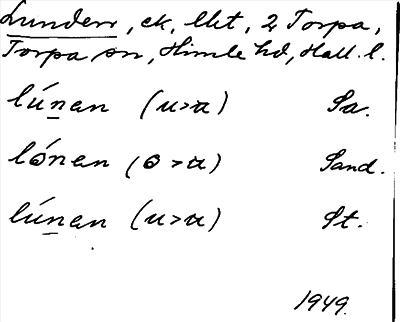 Lunden, ek, Met, 2 Torpa,
Torpa sn, Himle hd, Hall. l.
lúnan (u>a) Sa.
lónen (o>a) Sand.
lúnan (u>a) St.
1949.